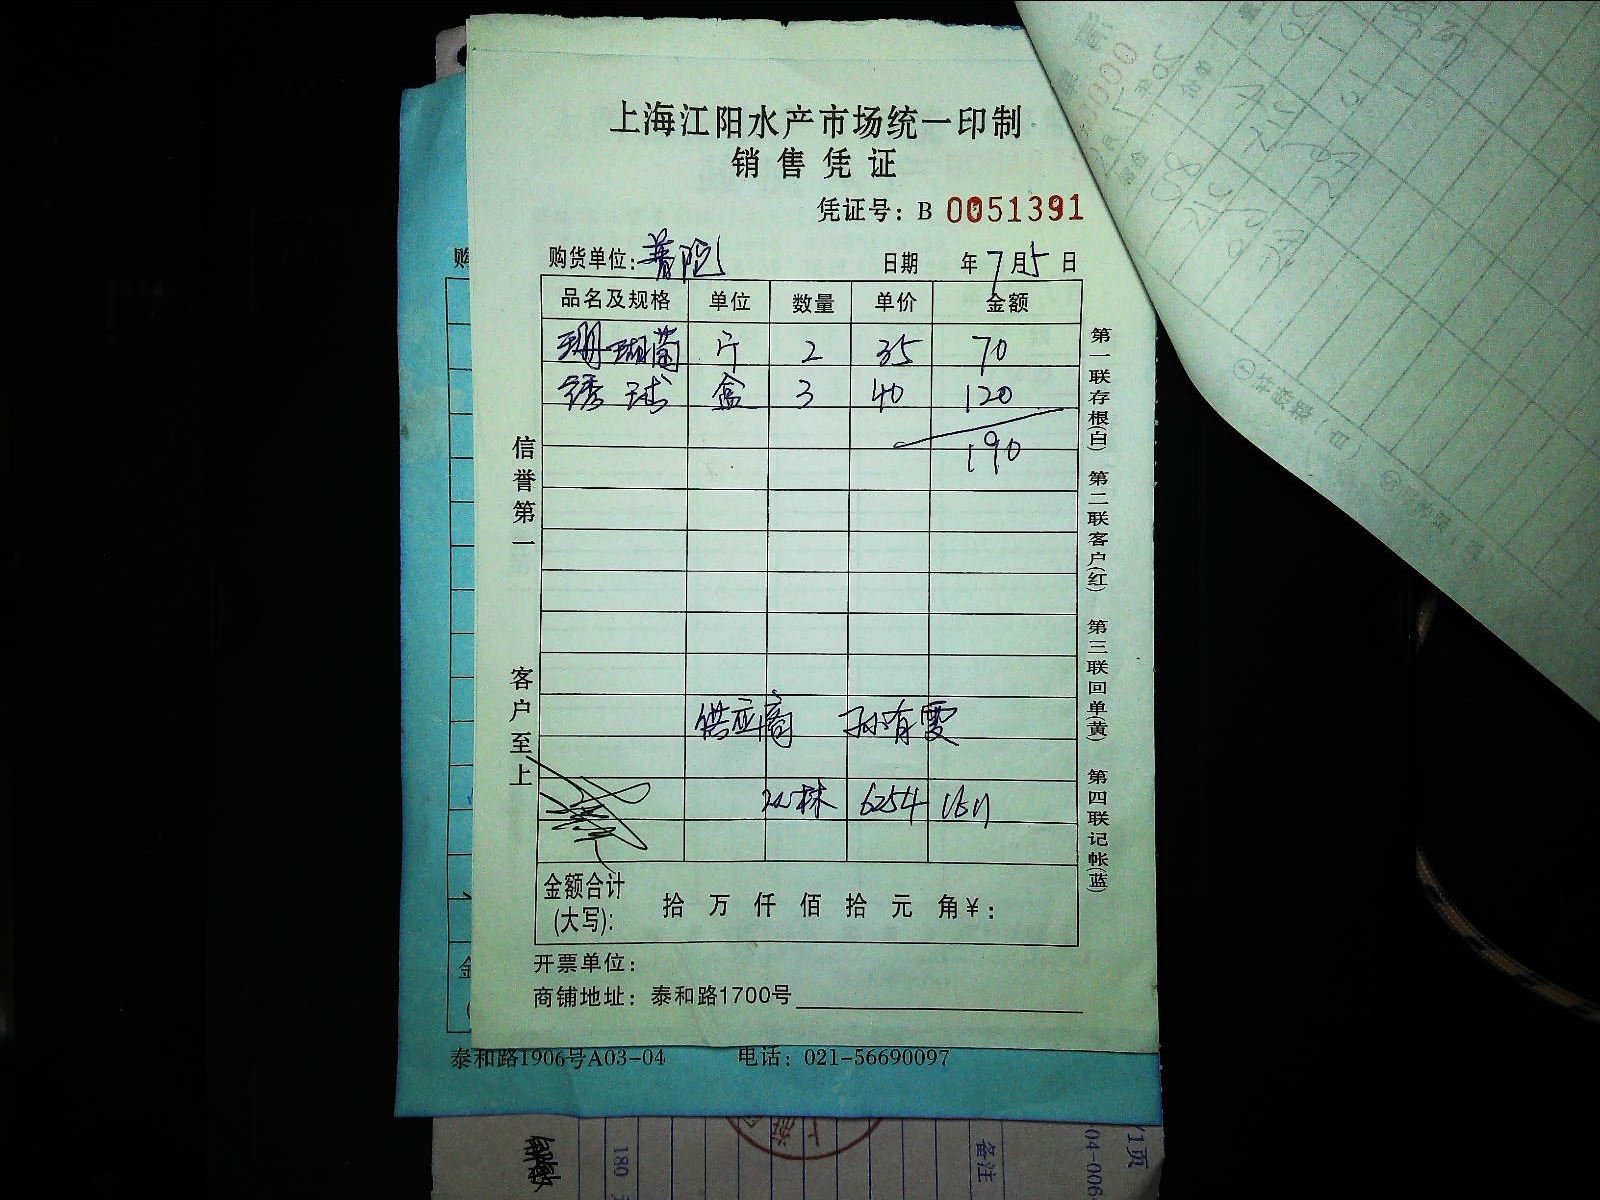 上海江阳水产市场统一印制
销售凭证
凭证号：B 0051391
购货单位：普陀 日期 年7月5日
品名及规格 单位 数量 单价 金额
珊瑚菌 斤 2 35 70
绣球 盒 3 40 120
190
供应商 孙有雯
林 6254
金额合计
(大写): 拾 万 仟 佰 拾 元 角¥：
开票单位：
商铺地址：泰和路1700号
信誉第一
客户至上
第一联存根(白) 第二联客户(红) 第三联回单(黄) 第四联记帐(蓝)
购
金
泰和路1906号A03-04 电话：021-56690097
180
备注
04-006
/1页